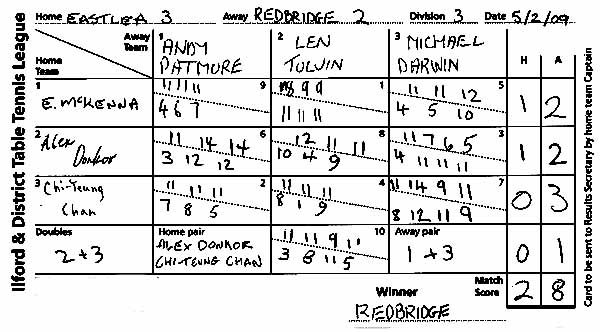 Ilford & District Table Tennis League
Home EASTLEA 3 Away REDBRIDGE 2 Division 3 Date 5/2/09
Away Team
Home Team
1 ANDY PATMORE
2 LEN TULVIN
3 MICHAEL DARWIN
H A
1 E. McKENNA
11 11 11 9
4 6 7
8 9 9 1
11 11 11
11 11 12 5
4 5 10
1 2
2 Alex Donkor
11 14 14 6
3 12 12
12 11 11 8
10 4 9
11 7 6 5 3
4 11 11 11
1 2
3 Chi-Teung Chan
11 11 11 2
7 8 5
11 11 11 4
8 1 9
11 14 9 11 7
8 12 11 9
0 3
Doubles
2 + 3
Home pair
ALEX DONKOR
CHI-TEUNG CHAN
11 11 9 11 10
3 8 11 5
Away pair
1 + 3
0 1
Winner
REDBRIDGE
Match Score
2 8
Card to be sent to Results Secretary by home team Captain